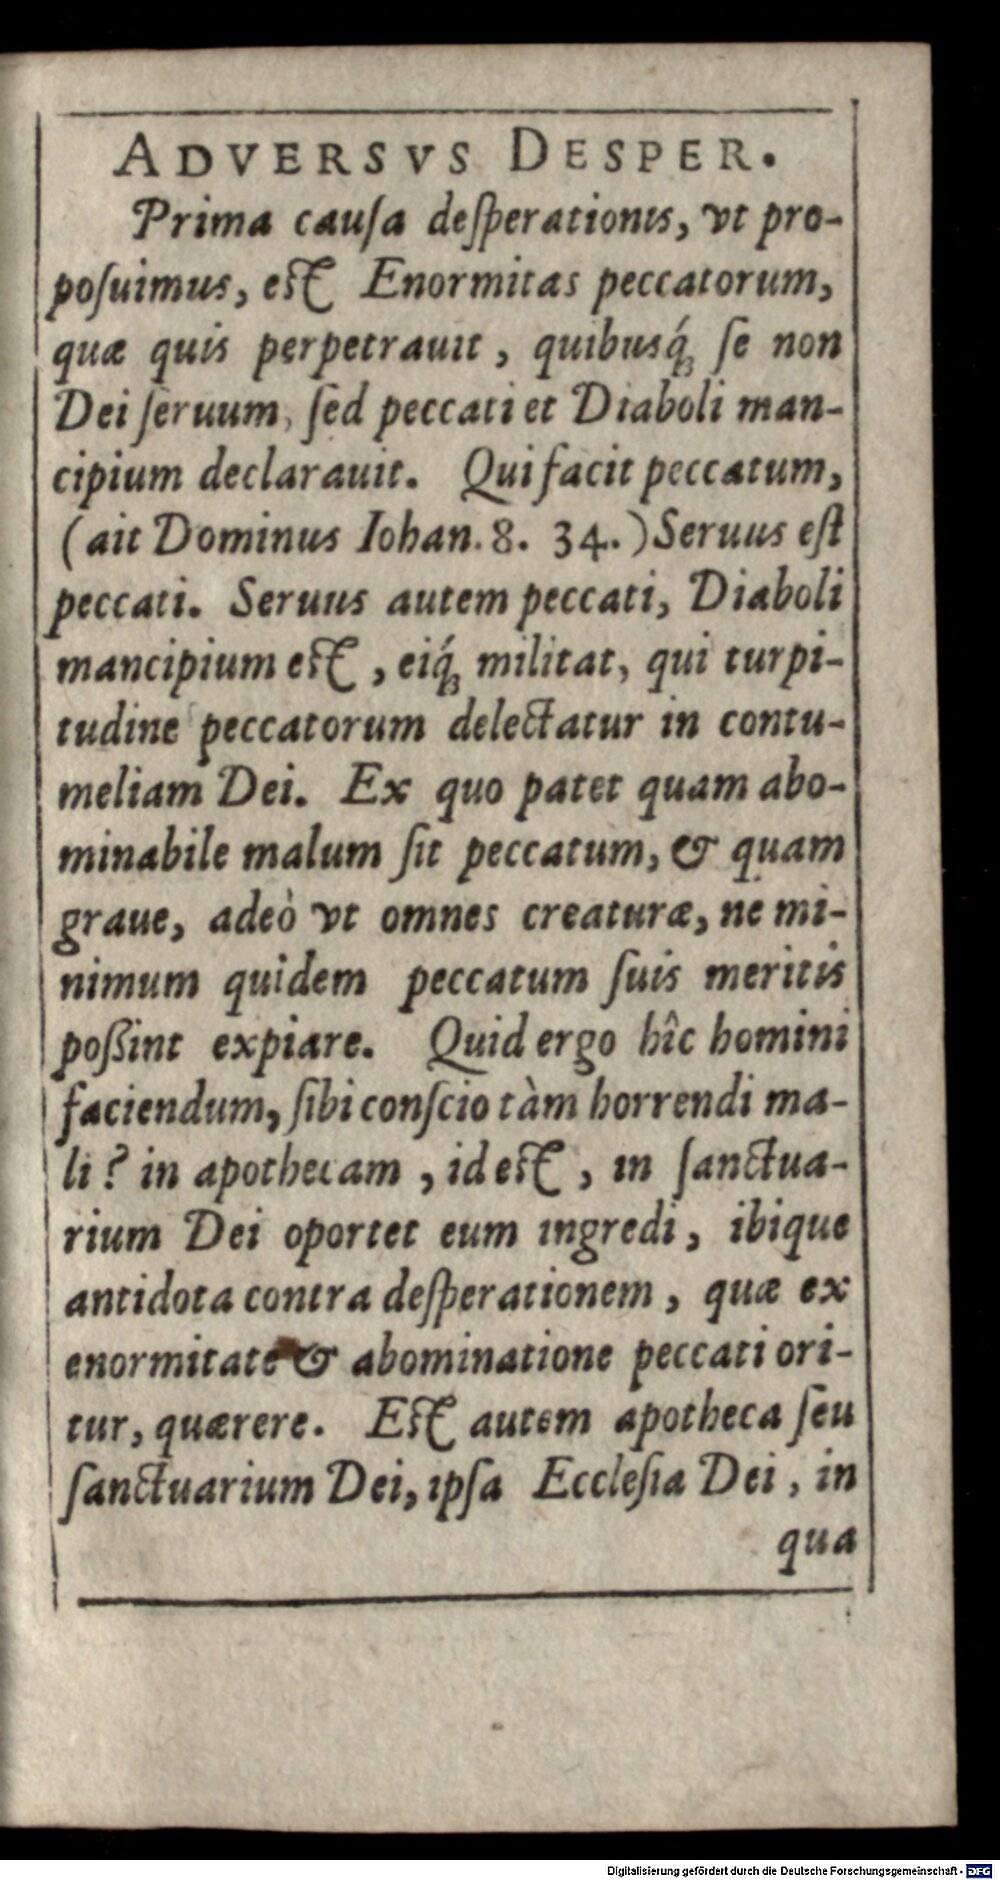 ADVERSVS DESPER.
Prima cauſa deſperationis, vt pro-
poſuimus, eſt Enormitas peccatorum,
quæ quis perpetrauit, quibusq́ꝫ ſe non
Dei ſeruum, ſed peccati et Diaboli man-
cipium declarauit. Qui facit peccatum,
(ait Dominus Iohan. 8. 34.) Seruus eſt
peccati. Seruus autem peccati, Diaboli
mancipium eſt, eiq́ꝫ militat, qui turpi-
tudine peccatorum delectatur in contu-
meliam Dei. Ex quo patet quam abo-
minabile malum ſit peccatum, & quam
graue, adeò vt omnes creaturæ, ne mi-
nimum quidem peccatum ſuis meritis
poßint expiare. Quid ergo hîc homini
faciendum, ſibi conſcio tàm horrendi ma-
li? in apothecam, id eſt, in ſanctua-
rium Dei oportet eum ingredi, ibique
antidota contra deſperationem, quæ ex
enormitate & abominatione peccati ori-
tur, quærere. Eſt autem apotheca ſeu
ſanctuarium Dei, ipſa Eccleſia Dei, in
qua
Digitalisierung gefördert durch die Deutsche Forschungsgemeinschaft - DFG